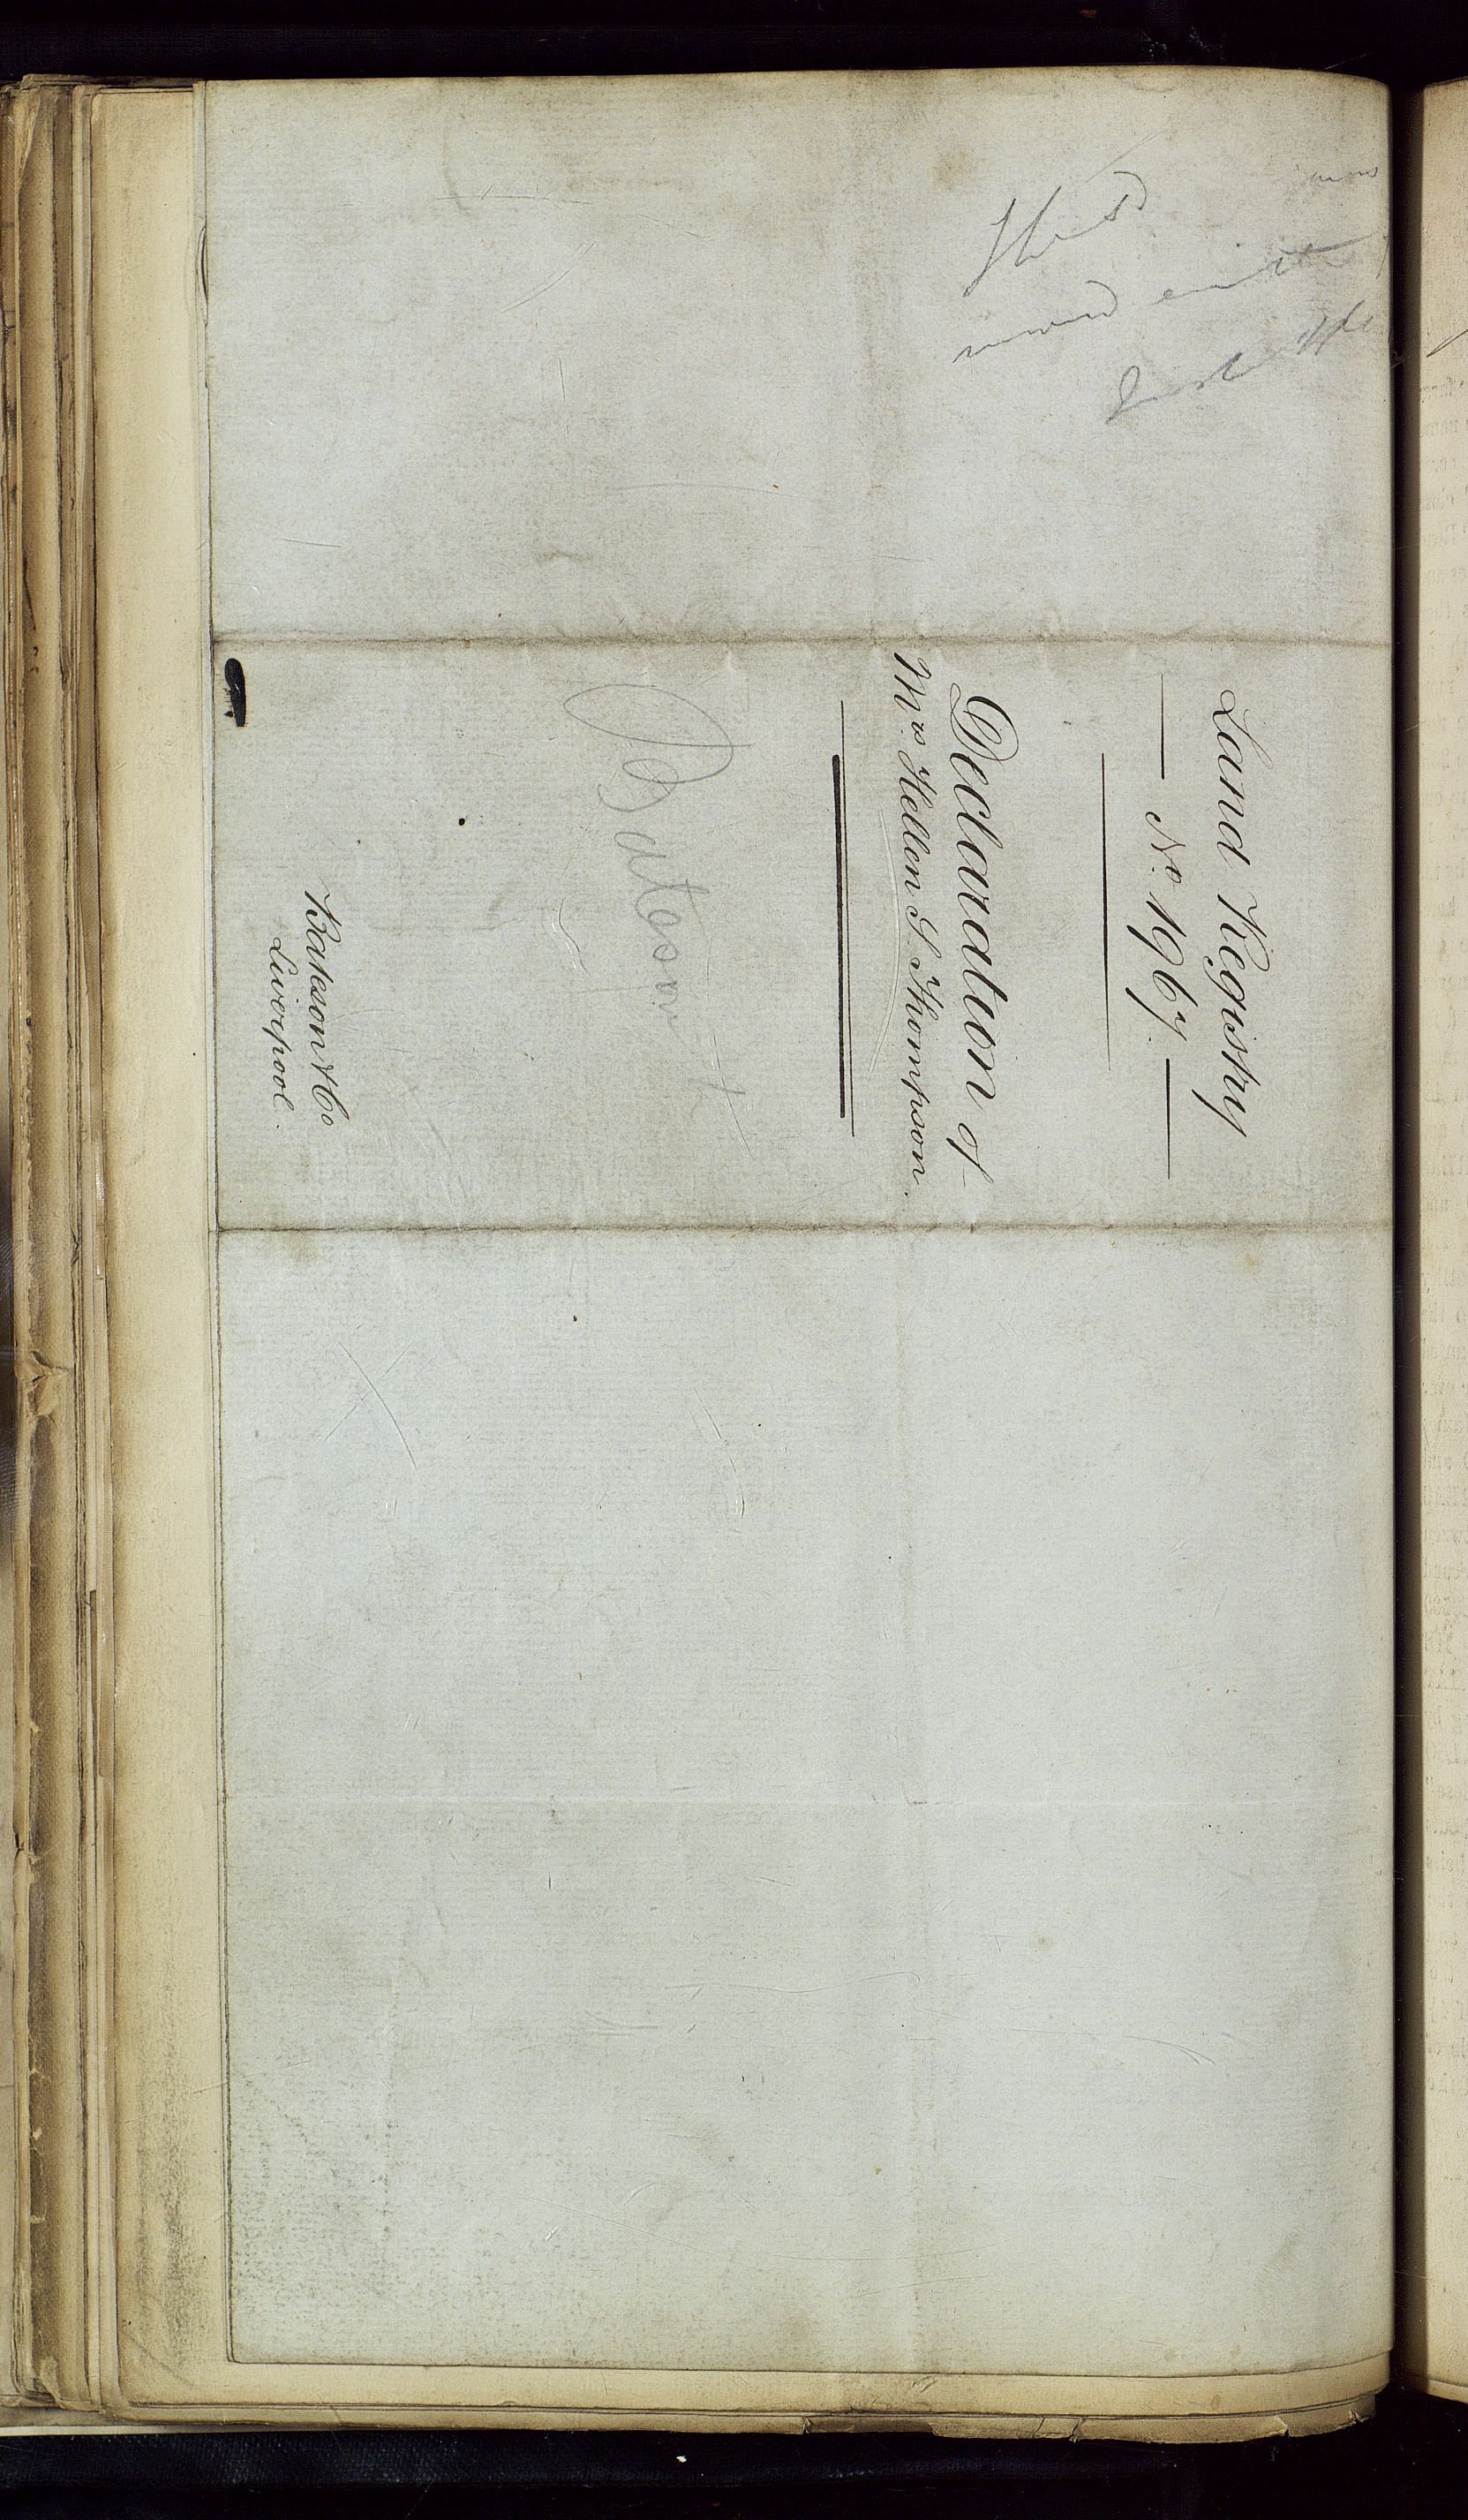 Land Registry
No. 1967.
Declaration of
Mrs. Hellen S. Thompson.
Bateson
Bateson & Co
Liverpool.